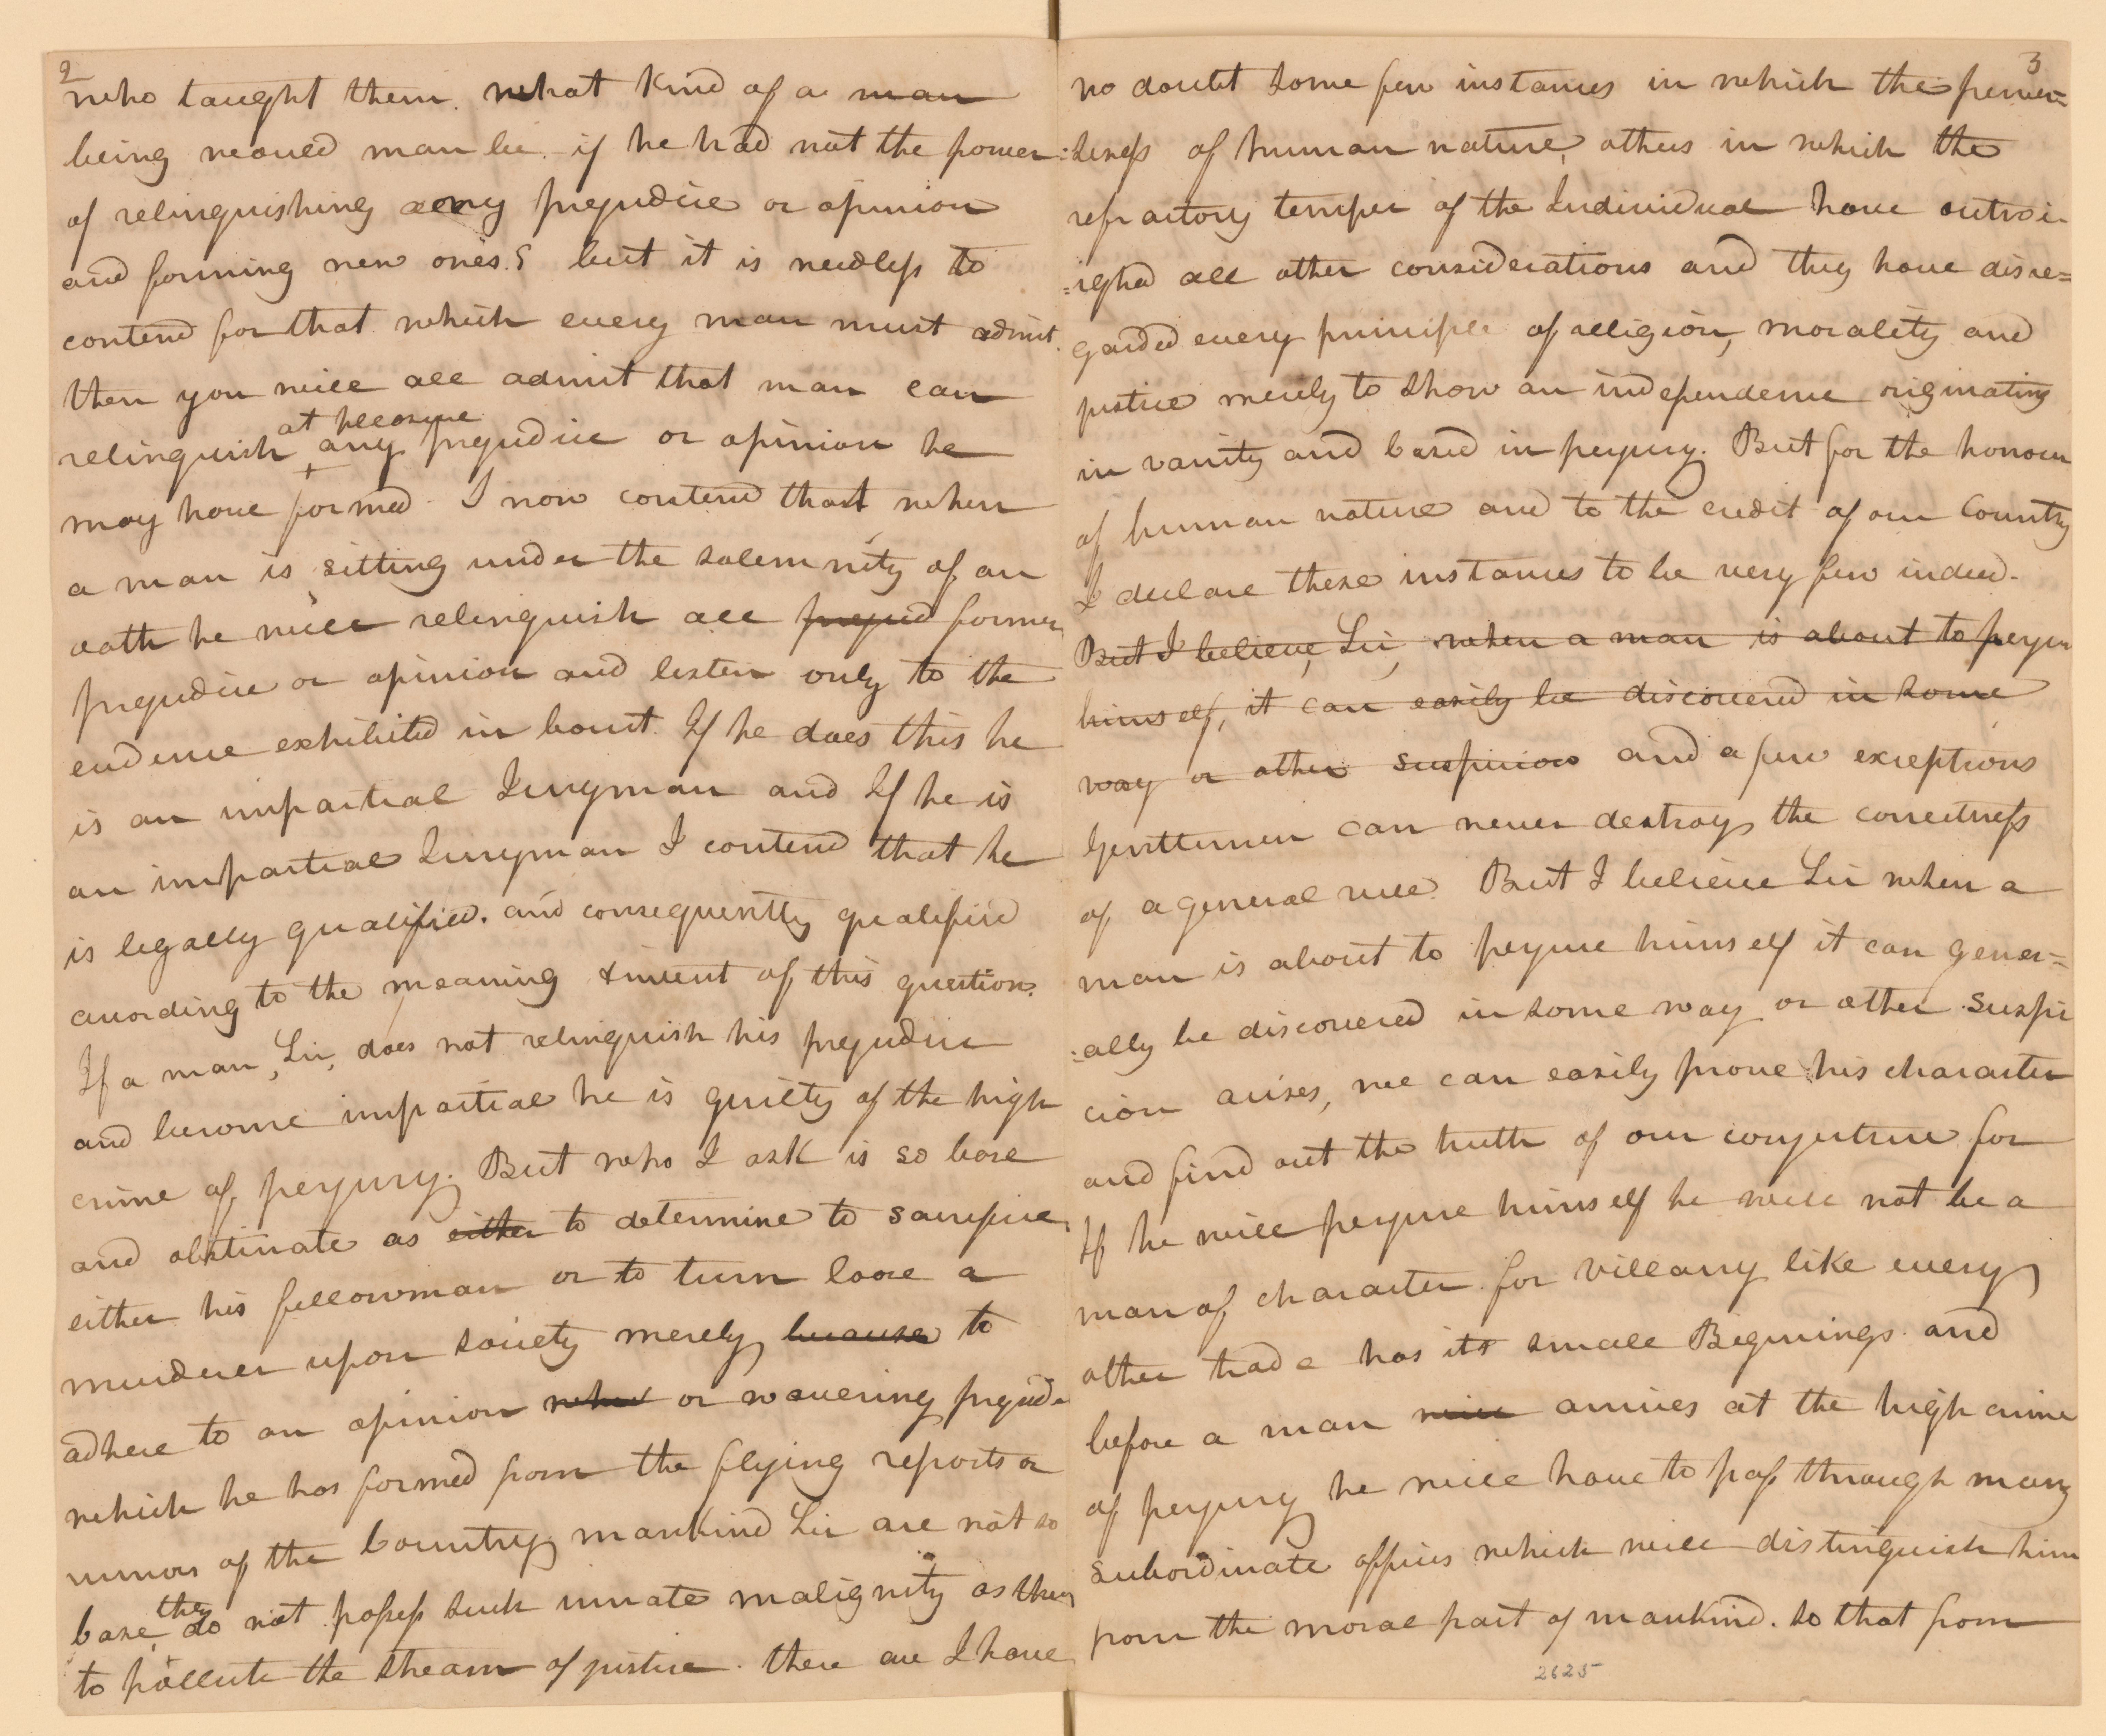 2
who taught them. what kind of a man
being would man be if he had not the power
of relinquishing any prejudice or opinion
and forming new ones? but it is needless to
contend for that which every man must admit.
then you will all admit that man can
at pleasure
relinquish any prejudice or opinion he
may have formed. I now contend that when
a man is sitting under the solemnity of an
oath he will relinquish all prejud former
prejudice or opinion and listen only to the
evidence exhibited in Court. If he does this he
is an impartial Juryman and If he is
an impartial Juryman I contend that he
is legally qualified. and consequently qualified
according to the meaning & intent of this question.
If a man, Sir, does not relinquish his prejudice
and become impartial he is guilty of the high
crime of perjury. But who I ask is so base
and obstinate as either to determine to sacrifice
either his fellowman or to turn loose a
murderer upon society merely because to
adhere to an opinion or wavering prejudice
which he has formed from the flying reports or
rumors of the Country mankind Sir are not so
base they do not possess such innate malignity as thus
to pollute the stream of justice. there are I have
3
no doubt some few instances in which the perver=
=seness of human nature, others in which the
refractory temper of the Individual have outwei
=ighed all other considerations and they have disre=
garded every principle of religion, morality and
justice merely to show an independence originating
in vanity and based in perjury. But for the honour
of human nature and to the credit of our Country
I declare these instances to be very few indeed.
But I believe, Sir, when a man is about to perjure
himself, it can easily be discovered in some
way or other suspicion and a few exceptions
Genttemen can never destroy the correctness
of a general rule. But I believe Sir when a
man is about to perjure himself it can gener=
=ally be discovered in some way or other. Suspi
cion arises, we can easily prove his character
and find out the truth of our conjecture for
If he will perjure himself he will not be a
man of character for villany like every
other trade has its small Beginings and
before a man will arrives at the high crime
of perjury he will have to pass through many
subordinate offices which will distinguish him
from the moral part of mankind. so that from
2625